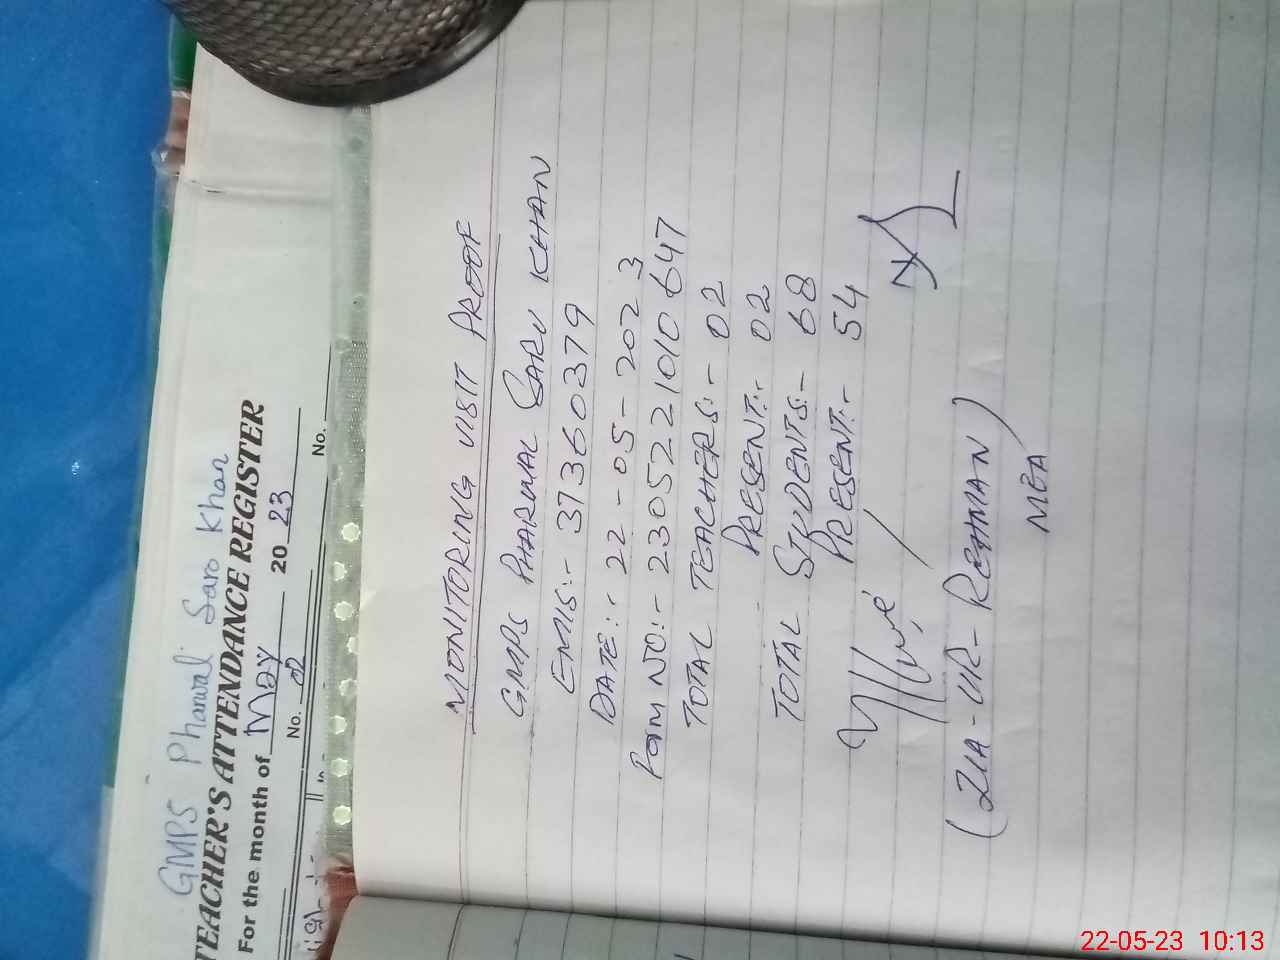 GMPS Pharwal Saro Khan
TEACHER'S ATTENDANCE REGISTER
For the month of May 20 23
No. 02
No.
MONITORING VISIT PROOF
GMPS PHARWAL SARU KHAN
EMIS:- 37360379
DATE:- 22-05-2023
Pom NO:- 230522101010647
TOTAL TEACHERS:- 02
PRESENT:- 02
TOTAL STUDENTS:- 68
PRESENT:- 54
(ZIA-UR-REHMAN)
MEA
22-05-23 10:13